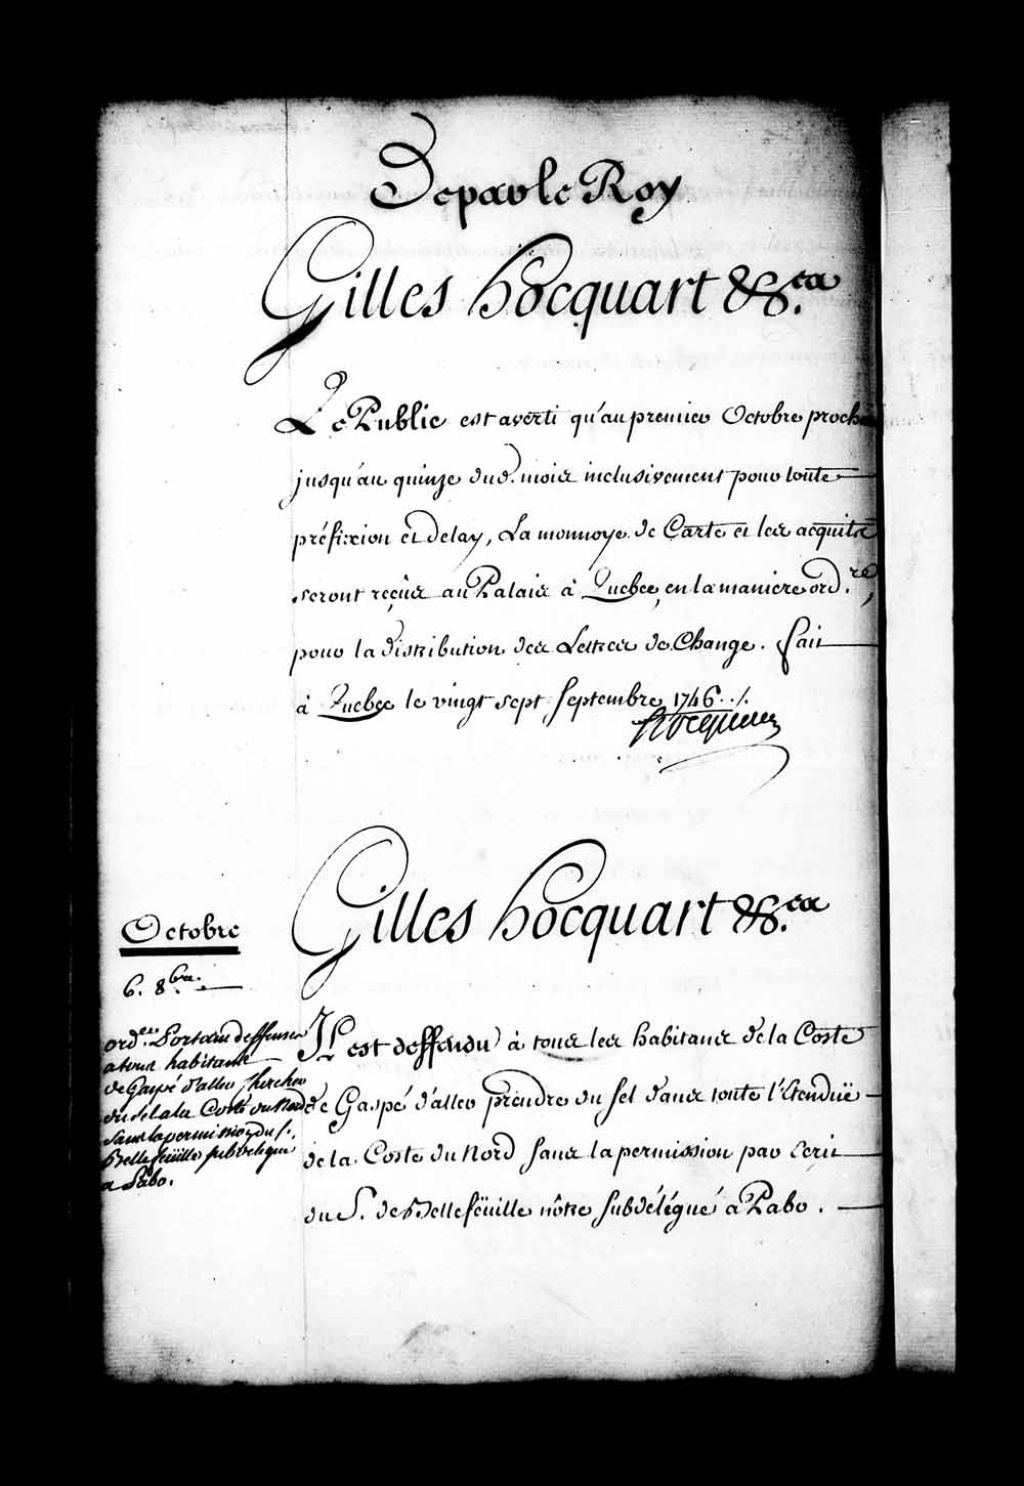 De par le Roy
Gilles hocquart &c.ca
Le Public est averti qu'au premier Octobre proch
jusqu'au quinze dud. mois inclusivement pour toute
préfixion et delay, La monnoye de Carte et les acquits
seront reçûs au Palais à Quebec, en la maniere ord.re,
pour la distribution des Lettres de Change. fait
à Quebec le vingt sept Septembre 1746 ./.
Hocquart
Gilles hocquart &c.ca
Octobre
6. 8bre.
ord.ce Portant deffenses
a tous habitans
de Gaspé d'aller chercher
du sel a la Coste du Nord
sans la permission du S.
Bellefeüille subdelegué
a Pabo.
IL est deffendu à tous les habitans de la Coste
de Gaspé d'aller prendre du sel dans toute l'Etenduë
de la Coste du Nord sans la permission par Ecrit
du S. de Bellefëuille nôtre subdélégué à Pabo.